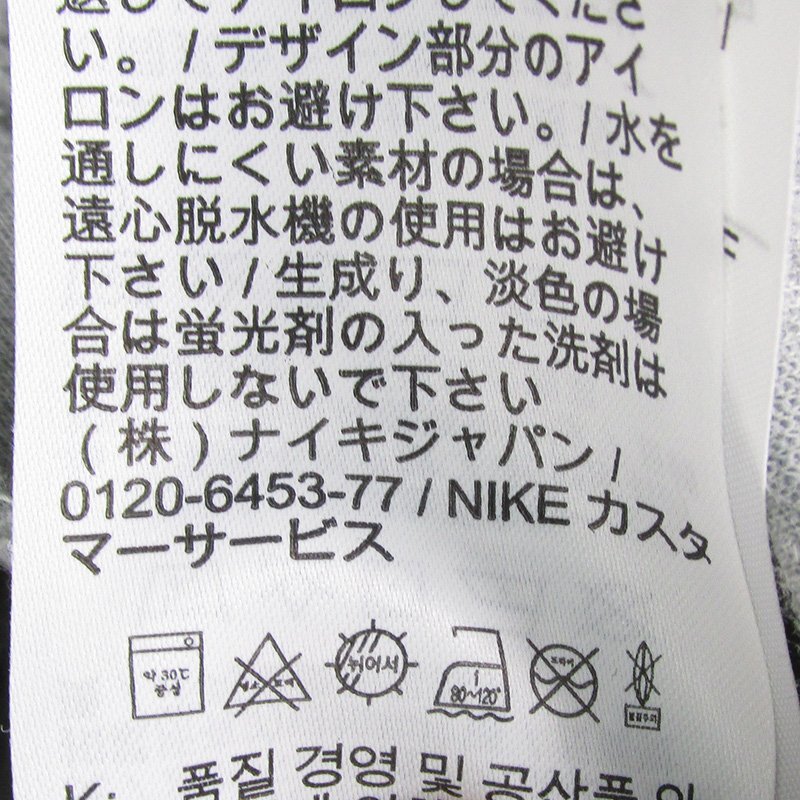 返してアイロンしてくださ
い。/デザイン部分のアイ
ロンはお避け下さい。/水を
通しにくい素材の場合は、
遠心脱水機の使用はお避け
下さい/生成り、淡色の場
合は蛍光剤の入った洗剤は
使用しないで下さい
(株)ナイキジャパン/
0120-6453-77 / NIKE カスタ
マーサービス
약 30℃
중성
뉘어서
1
80~120°
드라이
품질 경영 및 공산품 안